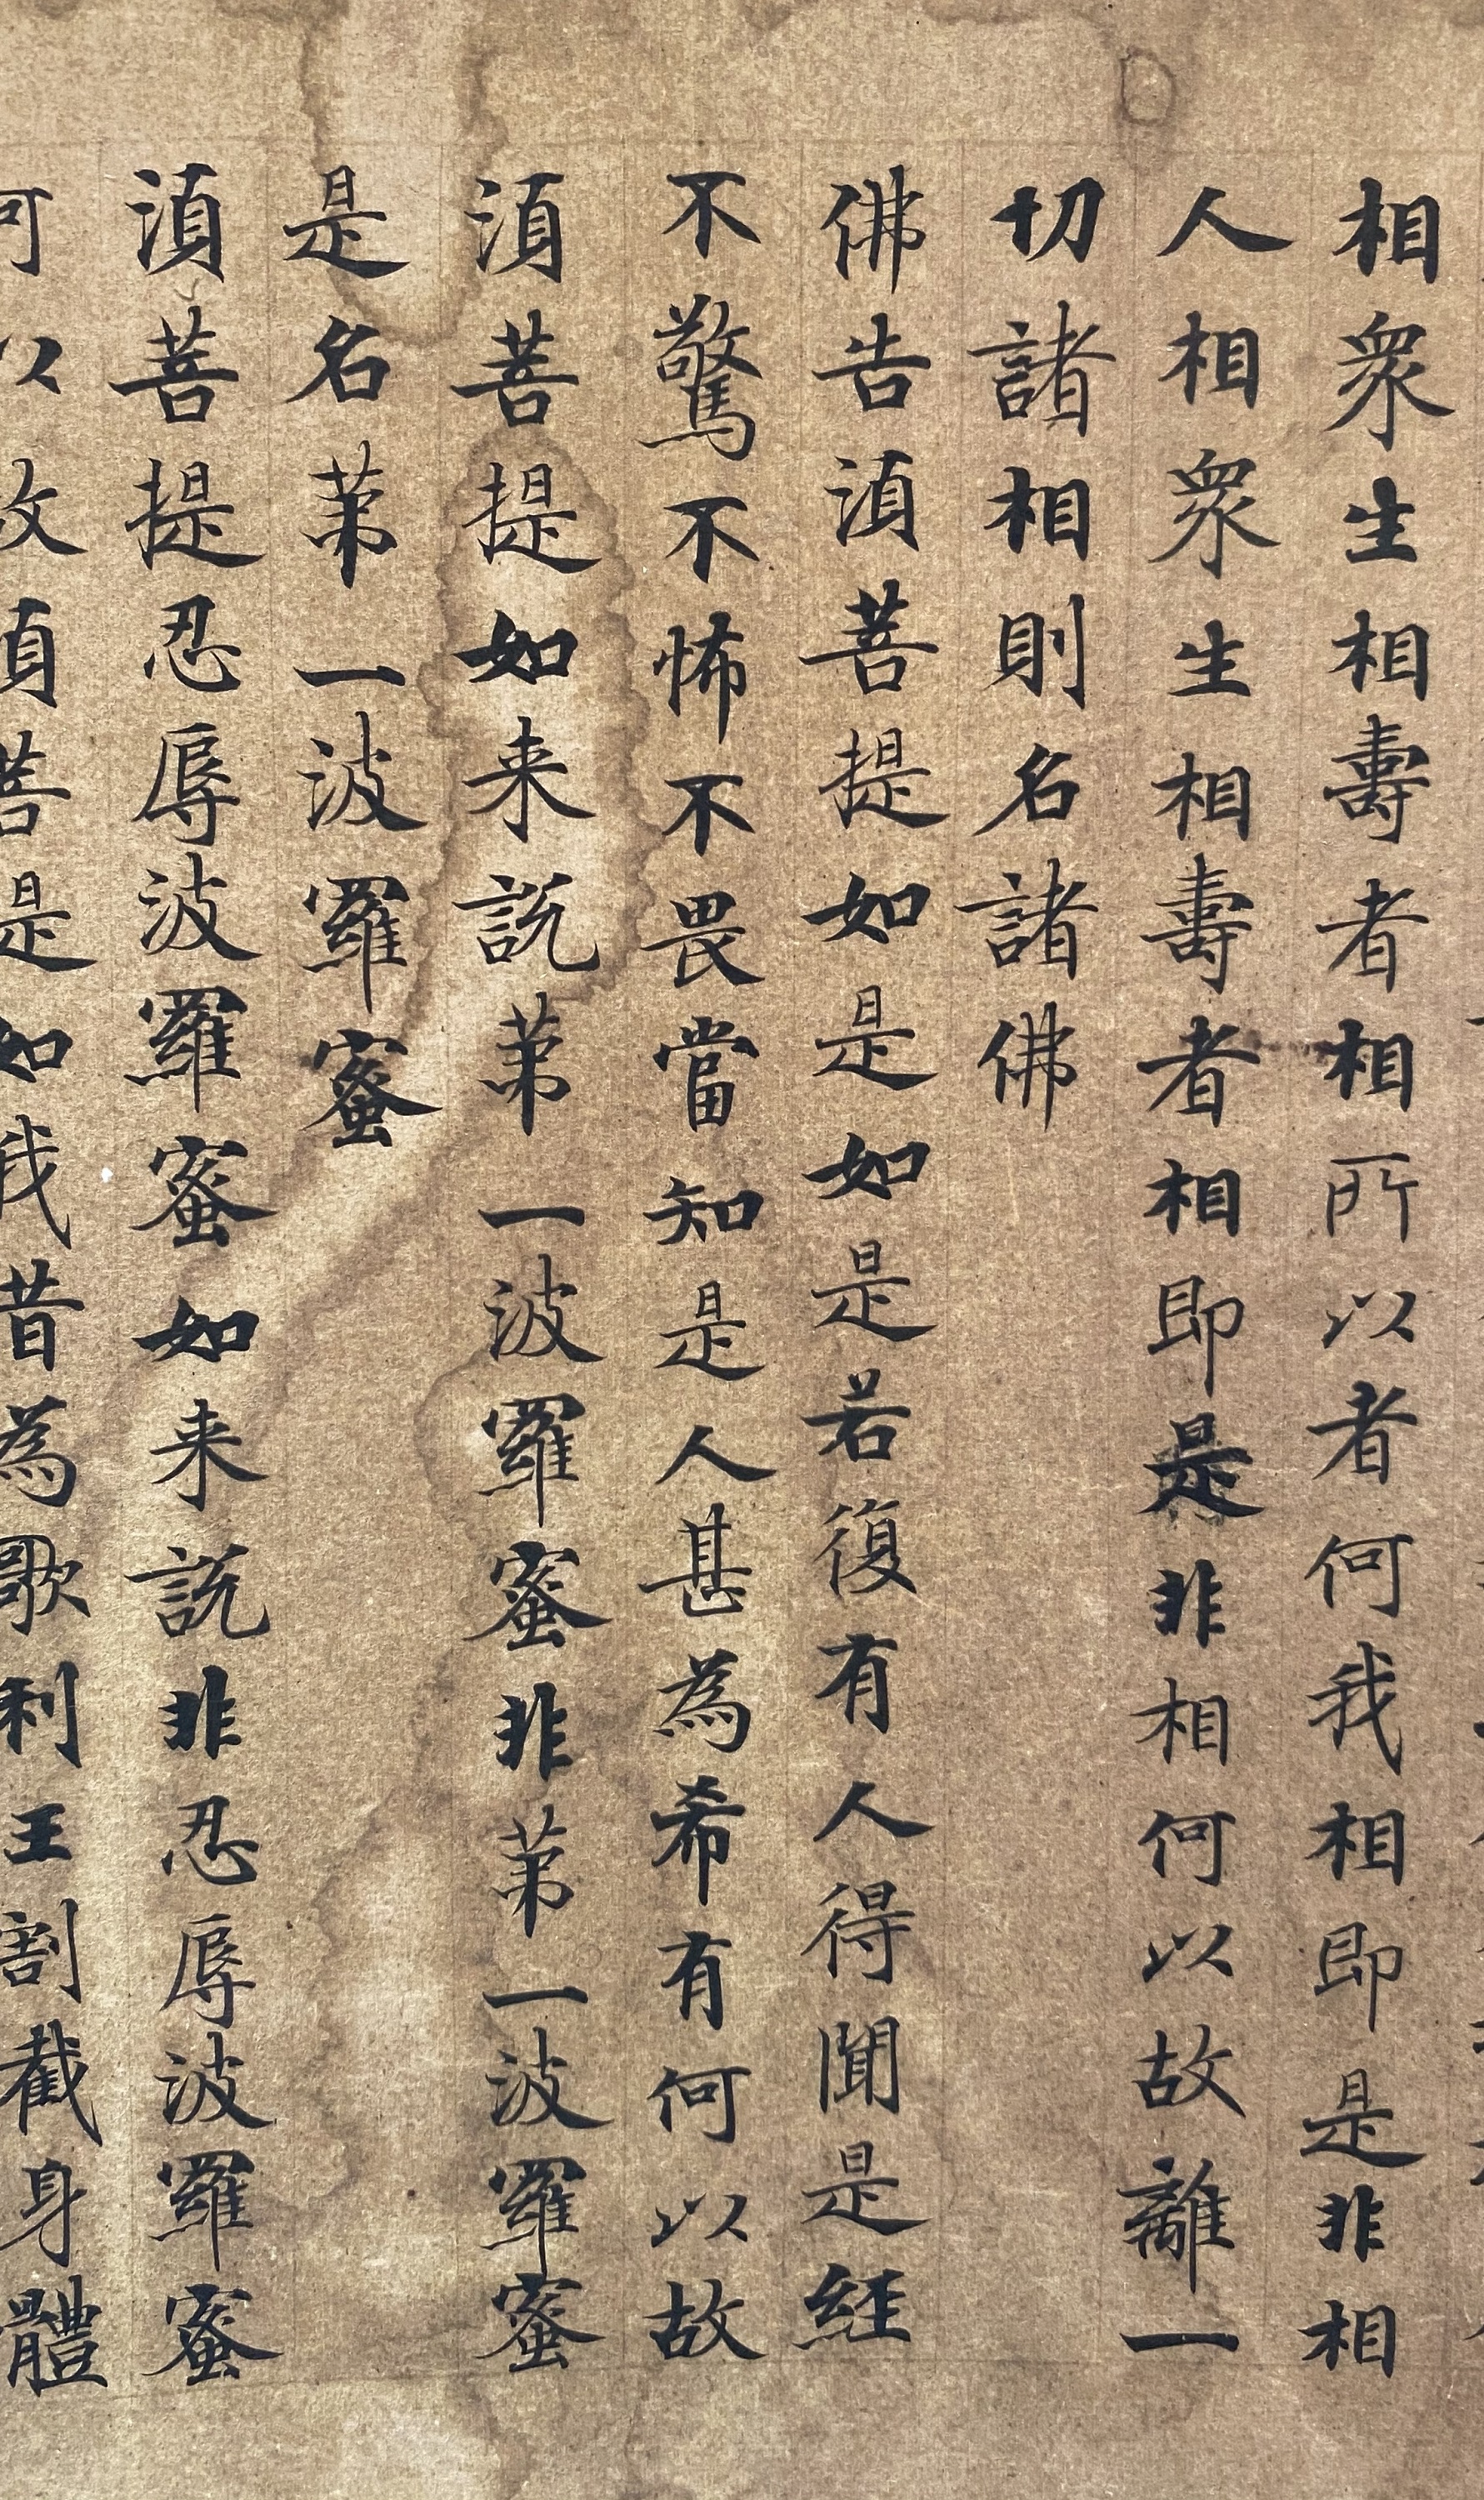 相衆生相壽者相所以者何我相即是非相
人相衆生相壽者相即是非相何以故離一
切諸相則名諸佛
佛告湏菩提如是如是若復有人得聞是經
不驚不怖不畏當知是人甚為希有何以故
湏菩提如来說苐一波羅蜜非苐一波羅蜜
是名苐一波羅蜜
湏菩提忍辱波羅蜜如来說非忍辱波羅蜜
何以故湏菩提如我昔為歌利王割截身體